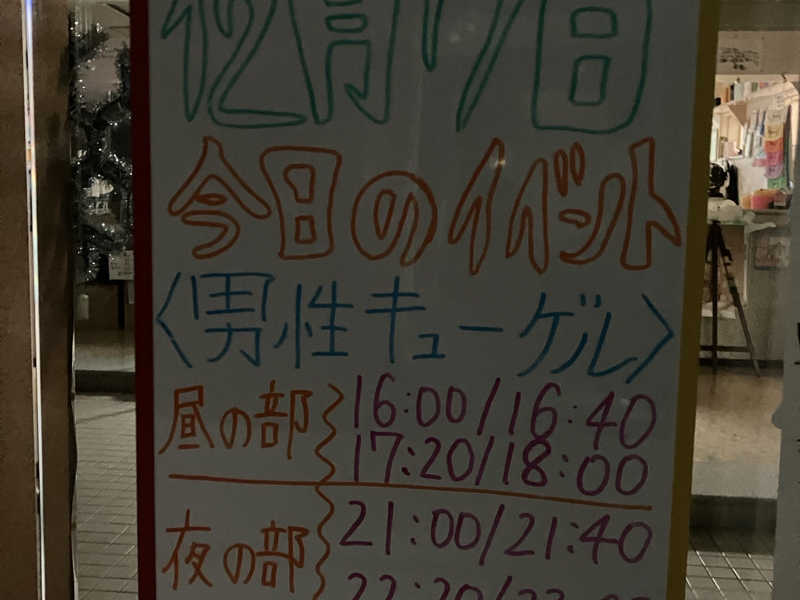 12月17日
今日のイベント
〈男性キューゲル〉
昼の部 16:00/16:40
17:20/18:00
夜の部 21:00/21:40